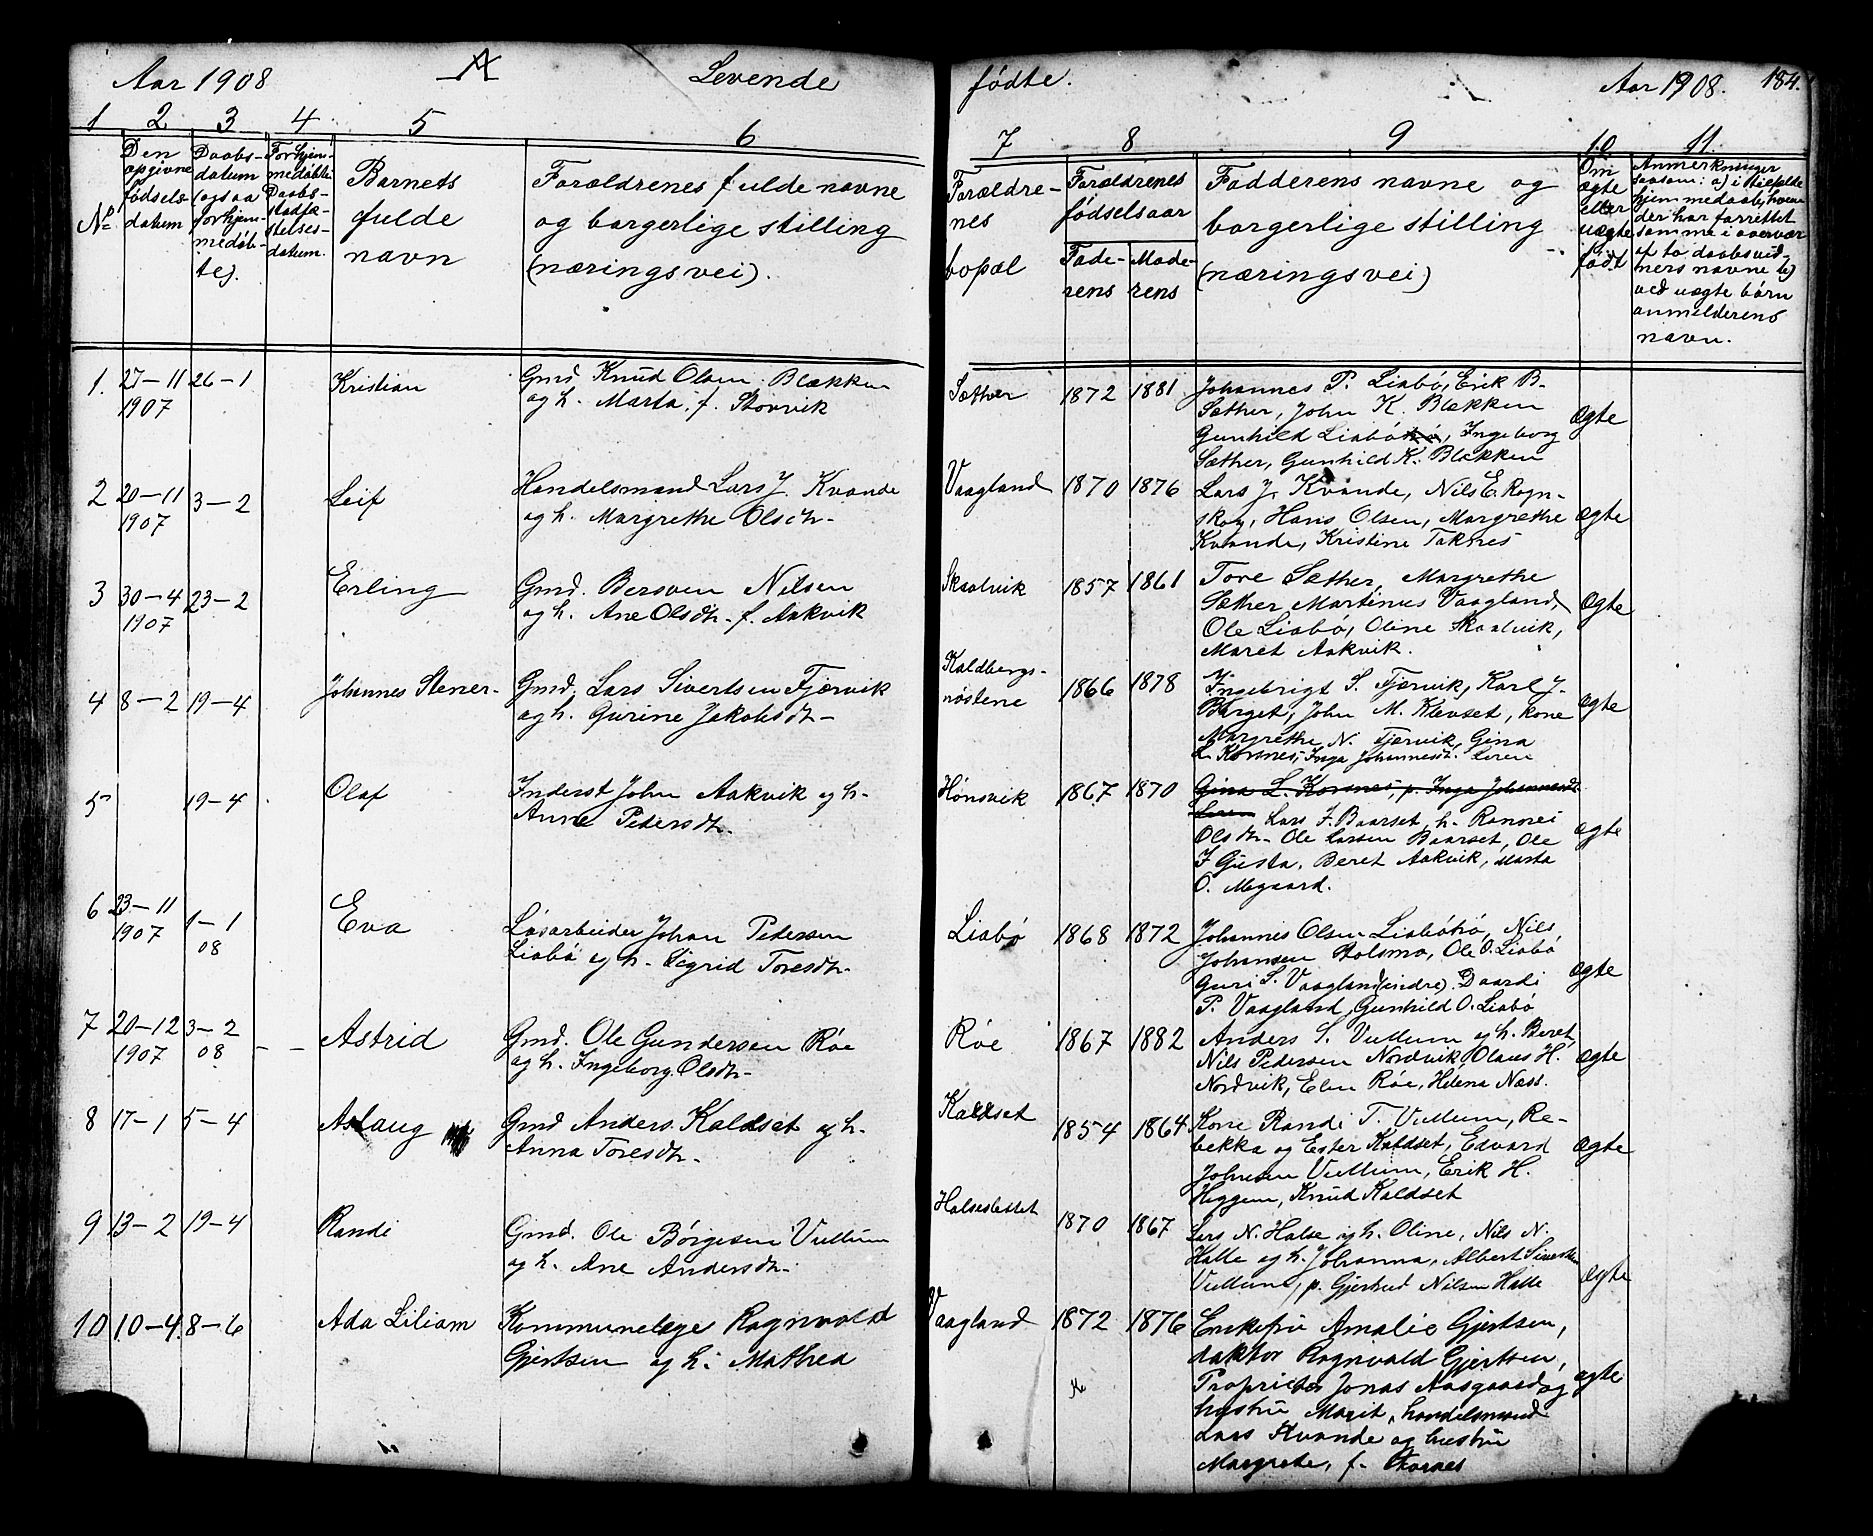 Aar 1908 A Levende
1 2 3 4 5 6
No
Den opgivne fødsels-datum
Daabs-datum (ogsaa forhjem-medøb-tes).
Forhjem-medøbte Daabs-stadfæ-stelses-datum.
Barnets fulde navn
Forældrenes fulde navne og borgerlige stilling (næringsvei).
1. 27-11 1907 26-1 Kristian Gmd Knud Olsen Blækken
og h. Marta f. Storvik
2 20-11 1907 3-2 Leif Handelsmand Lars J. Kvande
og h. Margrethe Olsdtr-
3 30-4 1907 23-2 Erling Gmd. Bersven Nilsen
og h. Ane Olsdtr- f. Aakvik
4 8-2 19-4 Johannes Stener- Gmd. Lars Sivertsen Fjærvik
og h. Gurine Jakobsdtr-
5 19-4 Olaf Inderst John Aakvik og h-
Anne Pedersdtr.
6 23-11 1907 1-1 08 Eva Løsarbeider Johan Pedersen
Liabø og h- Sigrid Toresdtr-
7 20-12 1907 3-2 08 Astrid Gmd. Ole Gundersen Røe
og h. Ingeborg Olsdtr-
8 17-1 5-4 Aslaug Gmd Anders Kaldset og h-
Anna Toresdtr-
9 13-2 19-4 Randi Gmd. Ole Børgesen Vullum
og h. Ane Andersdtr-
10 10-4 8-6 Ada Liliam Kommunelæge Ragnvald
Gjertsen og h: Mathea
fødte. Aar 1908. 184.
7 8 9 10 11.
Forældre-nes bopæl
Forældrenes fødselsaar
Fade-rens
Mode-rens
Fadderens navne og borgerlige stilling (næringsvei)
Om ægte eller uægte født
Anmerkninger
saasom: a) i tilfælde
hjemmedaab, hvem
der har forrettet
samme i overvær
af to daabsvid-
ners navne b)
ved uægte børn
anmelderens
navn.
Sæther 1872 1881 Johannes P. Liabø, Erik B- ægte
Sæther, John K. Blekken
Gunhild Liabø, Ingeborg
Sæther, Gunhild K. Blekken
Vaagland 1870 1876 Lars J. Kvande, Nils E. Rogn- ægte
skog, Hans Olsen, Margrethe
Kvande, Kristine Taknes
Skaalvik 1857 1861 Tore Sæther, Margrethe ægte
Sæther Martinus Vaagland,
Ole Liabø, Oline Skaalvik,
Maret Aakvik.
Kaldbergs-nøstene 1866 1878 Ingebrigt S. Fjærvik, Karl J. ægte
Berget, John M. Klevset, kone
Margrethe N. Fjærvik, Gina
L. Korsnes, Inga Johannesdt. Leren
Hønsvik 1867 1870 Gina L. Korsnes, p. Inga Johannesdt ægte
Leren Lars J. Baarset, h. Rannei
Olsdtr- Ole Larsen Baarset, Ole
J Gusta, Beret Aakvik, Marta
O. Megaard.
Liabø 1868 1872 Johannes Olsen Liabø, Nils ægte
Johansen Holsmo, Ole O. Liabø
Guri S. Vaagland (indre). Daardi
P. Vaagland, Gunhild O. Liabø
Røe 1867 1882 Anders S. Vullum og h. Beret, ægte
Nils Pedersen Nordvik, Olaus H.
Nordvik, Elen Røe, Helena Næss.
Kaldset 1854 1864 Kone Randi T. Vullum, Re- ægte
bekka og Ester Kaldset, Edvard
Johnsen Vullum, Erik H.
Heggem, Knud Kaldset
Halseslettet 1870 1867 Lars N. Halse og h. Oline, Nils N. ægte
Halle og h. Johanna, Albert Sivertsen
Vullum, p. Gjertrud Nilsen Halle
Vaagland 1872 1876 Enkefru Amalie Gjertsen, ægte
doktor Ragnvald Gjertsen,
Proprietær Jonas Aasgaard og
hustru Marit, handelsmand
Lars Kvande og hustru
Margrete, f.